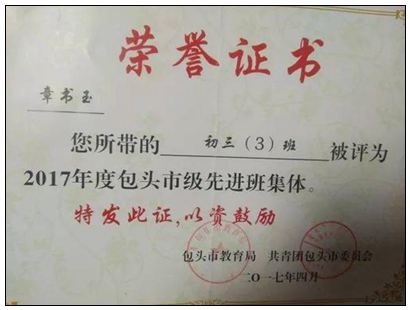 荣誉证书
章书玉
您所带的 初三（3）班 被评为
2017年度包头市级先进班集体。
特发此证,以资鼓励
包头市教育局 共青团包头市委员会
二〇一七年四月